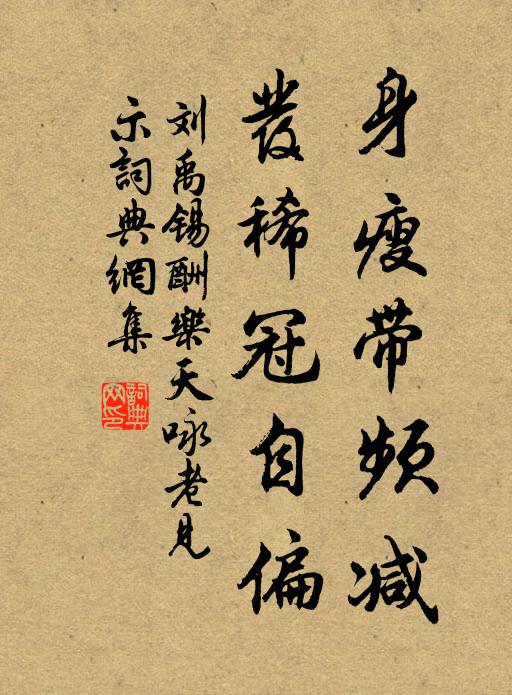 身瘦带频减
發稀冠自偏
刘禹锡酬樂天咏老見
示詞典網集
詞典
网印